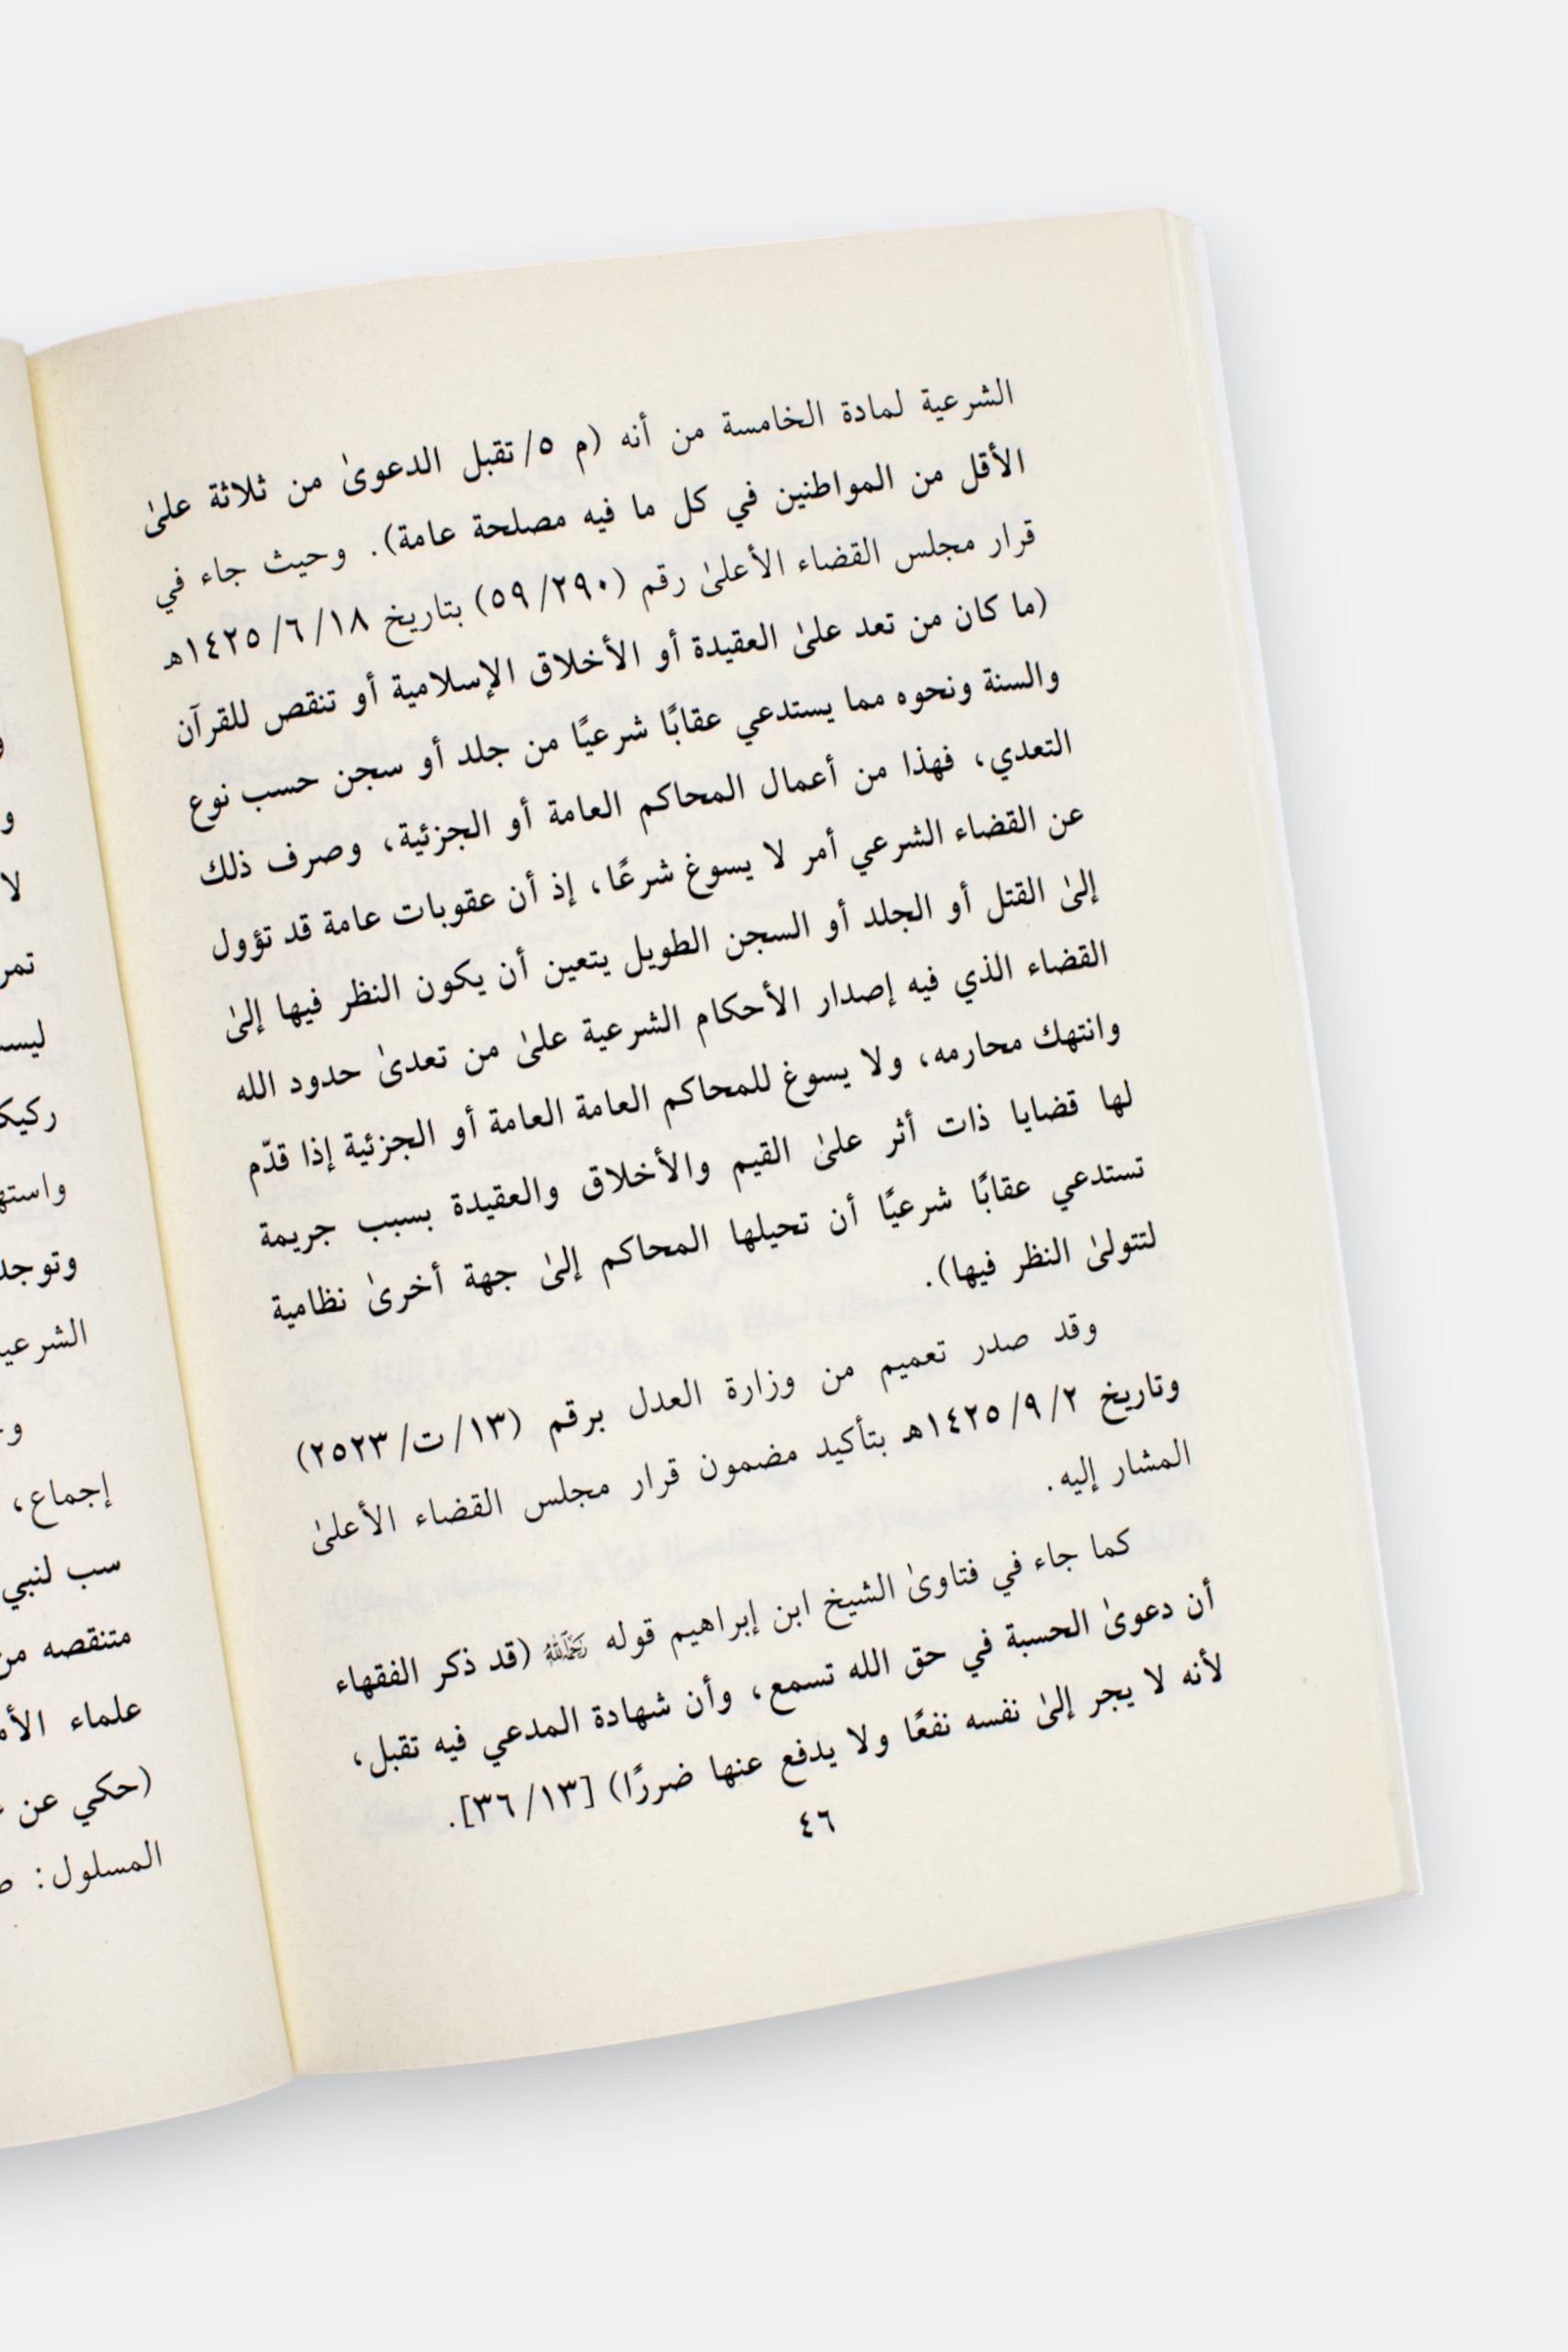 الشرعية لمادة الخامسة من أنه (م ٥/ تقبل الدعوىٰ من ثلاثة علىٰ
الأقل من المواطنين في كل ما فيه مصلحة عامة). وحيث جاء في
قرار مجلس القضاء الأعلىٰ رقم (٥٩/٢٩٠) بتاريخ ١٤٢٥/٦/١٨هـ
(ما كان من تعد علىٰ العقيدة أو الأخلاق الإسلامية أو تنقص للقرآن
والسنة ونحوه مما يستدعي عقابًا شرعيًا من جلد أو سجن حسب نوع
التعدي، فهذا من أعمال المحاكم العامة أو الجزئية، وصرف ذلك
عن القضاء الشرعي أمر لا يسوغ شرعًا، إذ أن عقوبات عامة قد تؤول
إلىٰ القتل أو الجلد أو السجن الطويل يتعين أن يكون النظر فيها إلىٰ
القضاء الذي فيه إصدار الأحكام الشرعية علىٰ من تعدىٰ حدود الله
وانتهك محارمه، ولا يسوغ للمحاكم العامة العامة أو الجزئية إذا قدّم
لها قضايا ذات أثر علىٰ القيم والأخلاق والعقيدة بسبب جريمة
تستدعي عقابًا شرعيًا أن تحيلها المحاكم إلىٰ جهة أخرىٰ نظامية
لتتولىٰ النظر فيها).
وقد صدر تعميم من وزارة العدل برقم (١٣/ت/٢٥٢٣)
وتاريخ ١٤٢٥/٩/٢هـ بتأكيد مضمون قرار مجلس القضاء الأعلىٰ
المشار إليه.
كما جاء في فتاوىٰ الشيخ ابن إبراهيم قوله رَحِمَهُ ٱللَّهُ (قد ذكر الفقهاء
أن دعوىٰ الحسبة في حق الله تسمع، وأن شهادة المدعي فيه تقبل،
لأنه لا يجر إلىٰ نفسه نفعًا ولا يدفع عنها ضررًا) [٣٦/١٣].
٤٦
لا
وتوجد
إجماع،
سب لنبي
متنقصه
علماء
(حكي عن
المسلول: